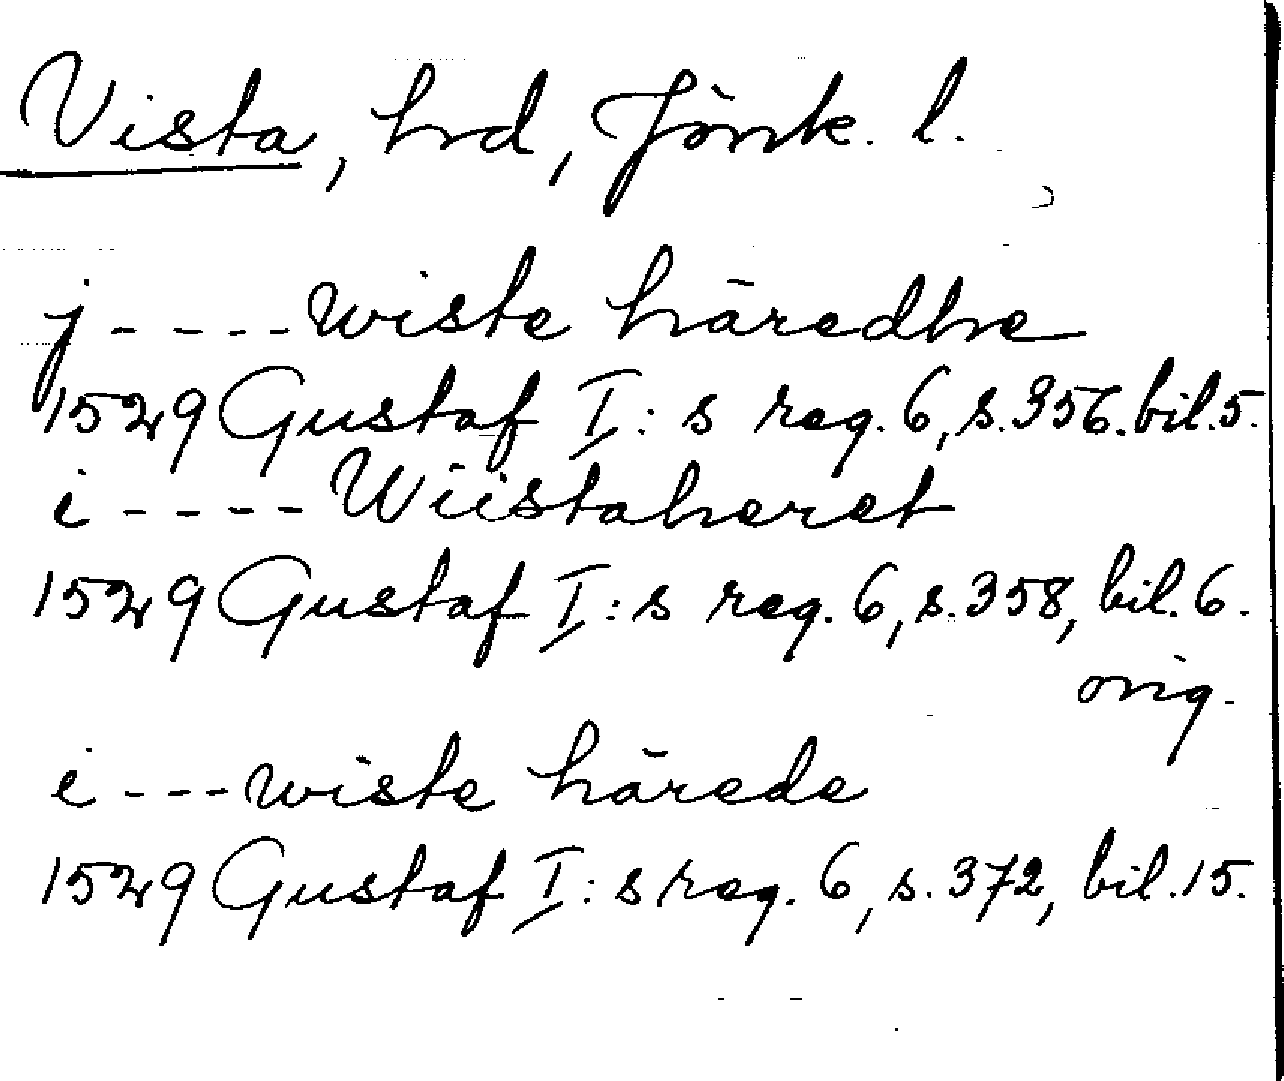 Vista, hrd, Jönk. l.
j - - - - wiste häredhe
1529 Gustaf I:s reg. 6, s. 356. bil. 5.
i - - - - Wiistaheret
1529 Gustaf I:s reg. 6, s. 358, bil. 6.
orig.
i - - - wiste härede
1529 Gustaf I:s reg. 6, s. 372, bil. 15.